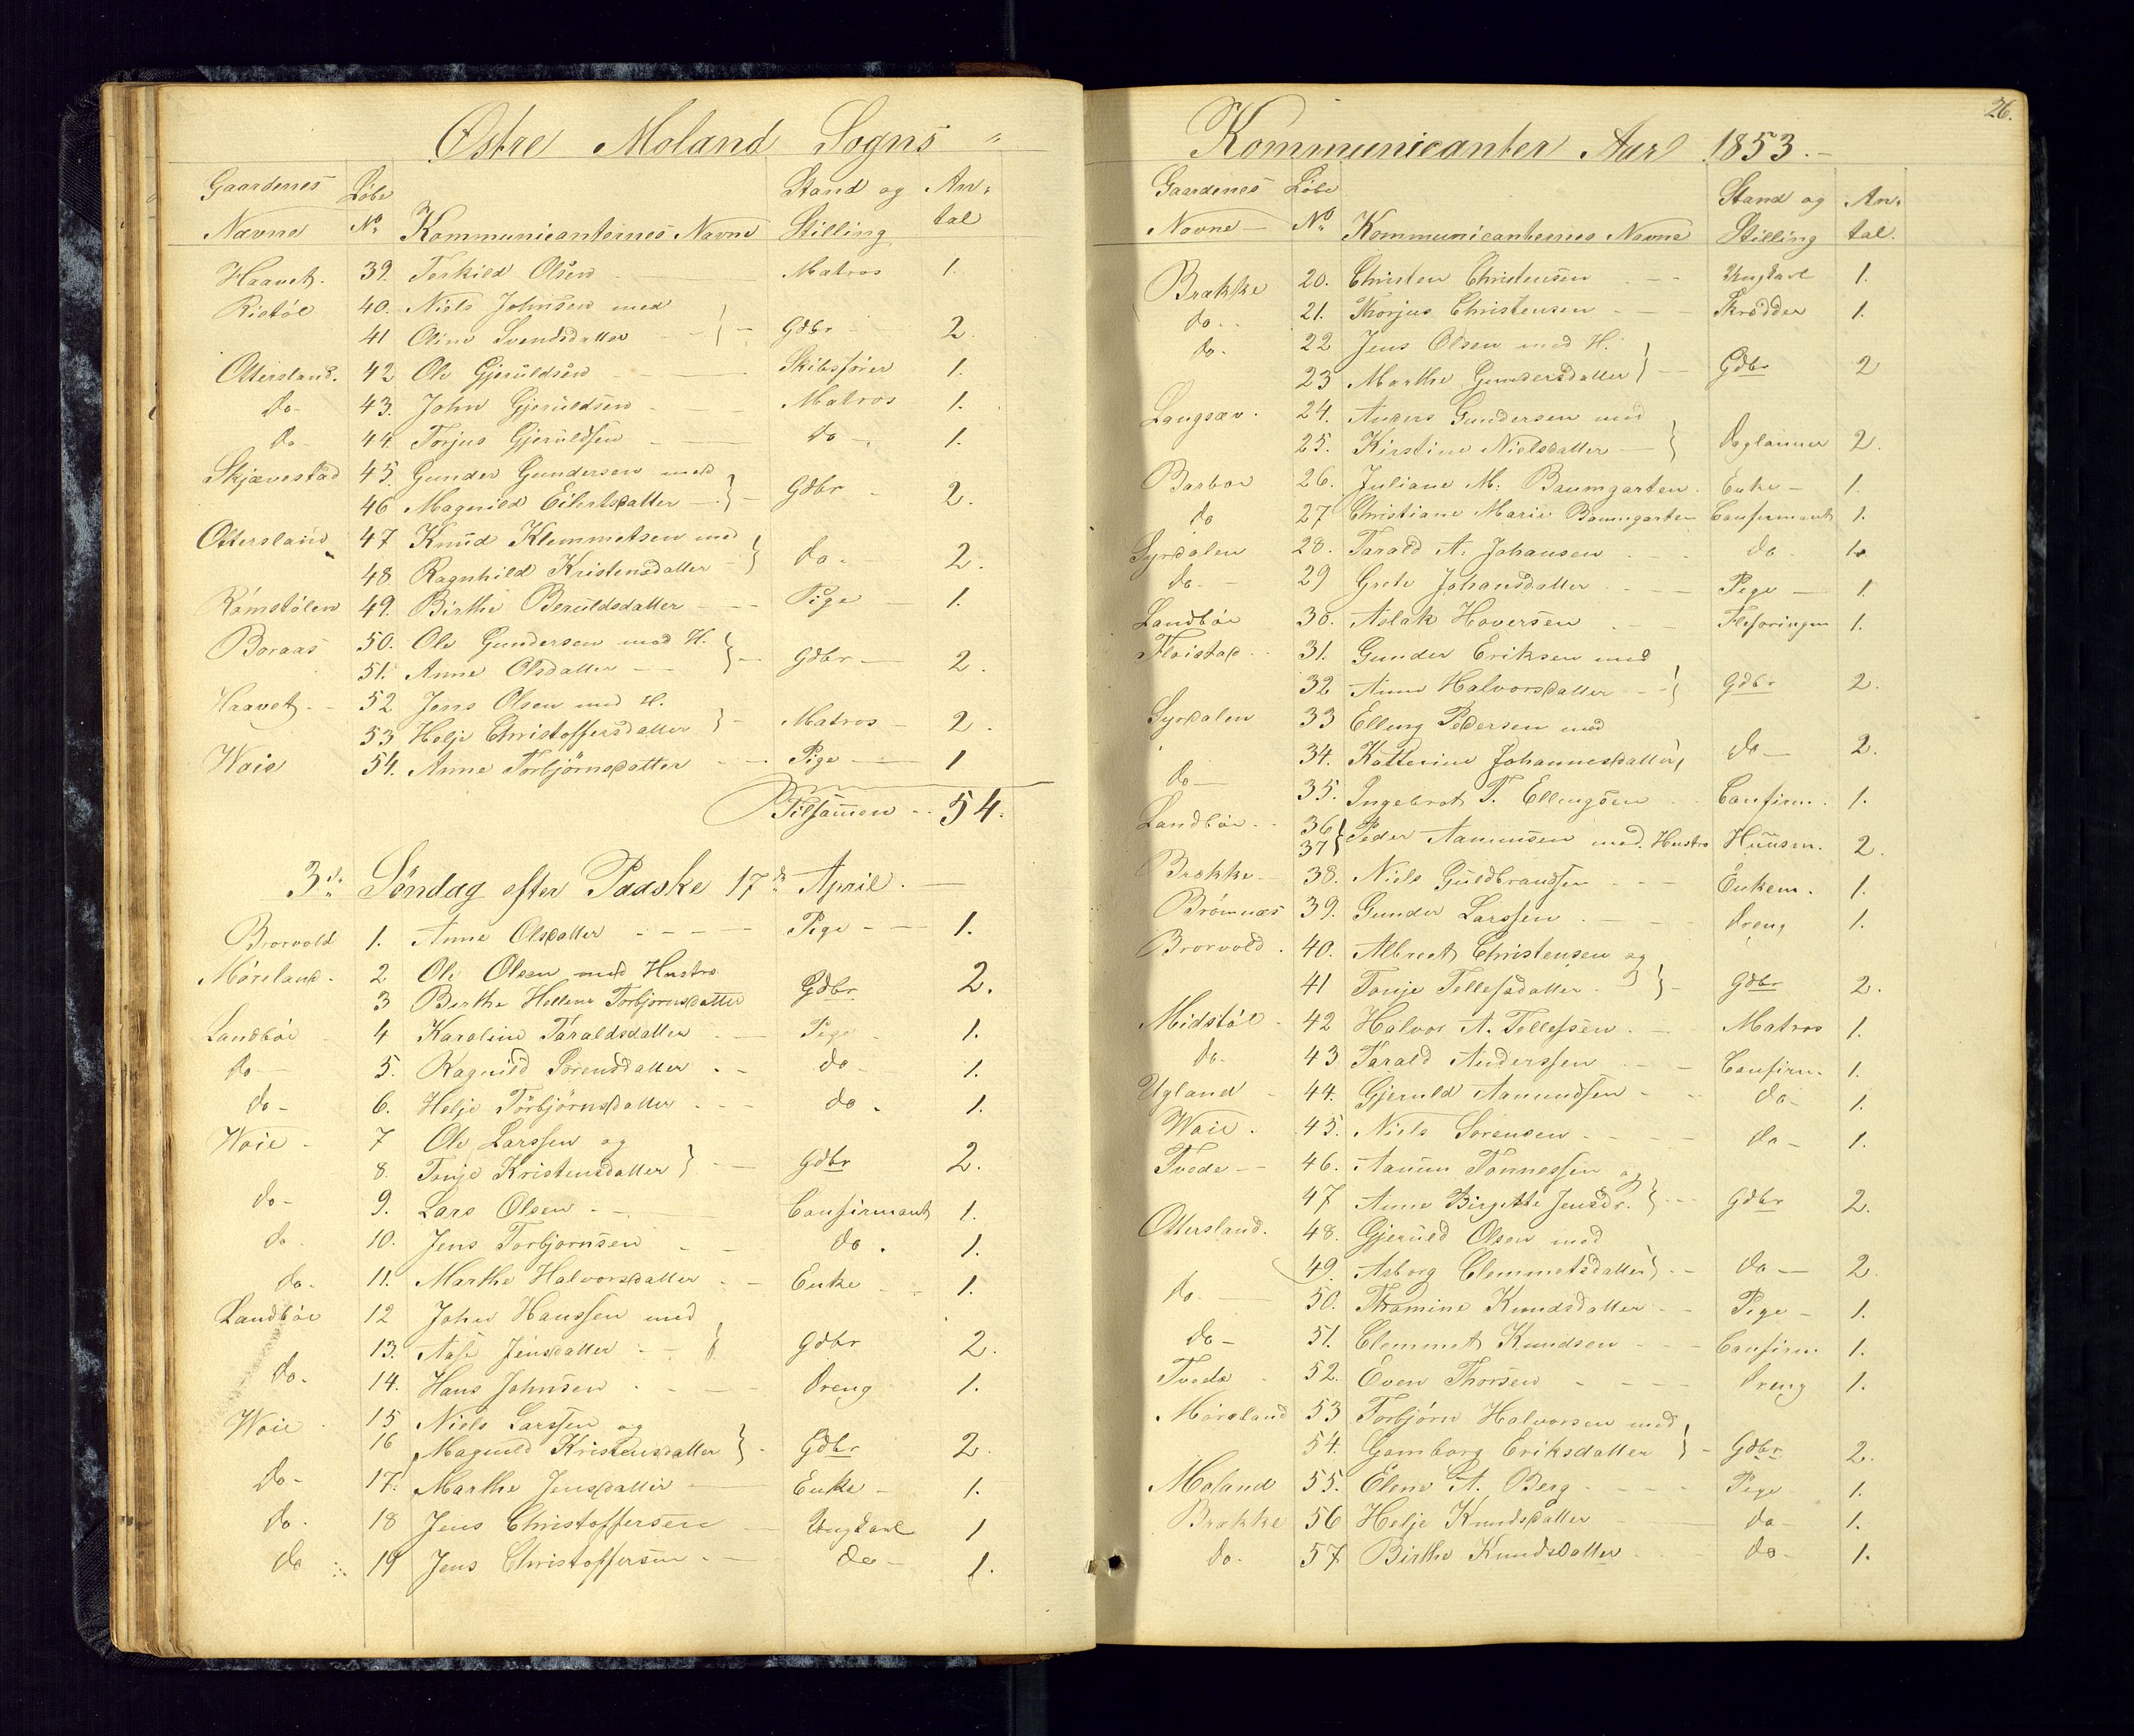 Østre Moland Sogns "
Gaardenes Løbe Stand og An-
Navne No. Kommunicanternes Navne Stilling tal
Haavet. 39. Terkild Olsen - Matros 1.
Ristøl 40. Niels Johnsen med
41 Oline Svendsdatter } Gdbr - 2.
Ottersland. 42 Ole Gjeruldsen - Skibsfører 1.
do- 43. John Gjeruldsen - Matros 1.
do- 44. Torjus Gjeruldsen - do - 1.
Skjævestad 45. Gunder Gundersen med
46 Magnild Eilertsdatter } Gdbr - 2.
Ottersland 47 Knud Klemmetsen med
48. Ragnhild Kristensdatter } do - 2.
Rømstølen 49. Birthe Beruldsdatter - Pige - 1.
Boraas 50. Ole Gundersen med H.
51. Anne Olsdatter } Gdbr - 2.
Haavet - 52. Jens Olsen med H.
53 Helje Christoffersdatter } Matros - 2.
Waie 54. Anne Torbjörnsdatter - Pige - 1
Tilsammen - 54.
3die Søndag efter Paaske 17de April. -
Brorvold 1. Anne Olsdatter - Pige - 1.
Møreland. 2. Ole Olsen med Hustro
3 Berthe Hellene Torbjørnsdatter Gdbr 2.
Landbøe 4 Karoline Taraldsdatter - Pige 1.
do - 5. Ragnild Sørensdatter - do - 1.
do - 6. Helje Törbjörnsdatter - do - 1.
Waie - 7 Ole Larssen og
8. Tonje Kristensdatter } Gdbr 2.
do - 9. Lars Olsen - Confirmant 1.
do 10. Jens Torbjornsen - do . 1.
do - 11. Marthe Halvorsdatter - Enke - 1.
Landböe 12 John Hanssen med
13. Aase Jensdatter } Gdbr 2.
do - 14. Hans Johnsen - Dreng 1.
Waie 15 Niels Larssen og
16 Magnild Kristensdatter } Gdbr 2.
do - 17. Marthe Jensdatter - Enke - 1.
do - 18 Jens Christoffersen - Ungkarl 1
do 19 Jens Christoffersen - do - 1.
26.
Kommunicanter Aar 1853. -
Gaardenes Løbe Stand og An-
Navne - No. Kommunicanternes Navne Stilling tal.
Brække 20. Christen Christensen - Ungkarl 1.
do - 21. Thorjus Christensen - Skrædder 1.
do - 22 Jens Olsen med H.
23 Marthe Gundersdatter } Gdbr 2
Langsæv. 24. Anders Gundersen med
25. Kirstine Nielsdatter } Daglønner 2.
Barboe 26. Juliane M. Baumgarten. Enke - 1.
do 27 Christiane Marie Baumgarten Confirmant 1.
Syrdalen 28. Tarald A. Johansen - do - 1.
do - 29 Grete Johansdatter - Pige - 1.
Landbøe 30. Aslak Haversen - 1.
Fløistad - 31. Gunder Eriksen med
32 Anne Halvorsdatter } Gdbr 2.
Syrdalen 33 Elling Pedersen med
34. Katterine Johannesdatter } do - 2.
do - 35. Ingebret T. Ellingsen - Confirm. 1.
Landbøe - 36
37 } Peder Aamunsen med Hustro Huusm. 2.
Brække - 38. Niels Guldbrandsen - Enkem. 1.
Brömnæs 39. Gunder Larssen - Dreng 1.
Brorvold. 40. Albrect Christensen og
41 Tonje Tellefsdatter } Gdbr 2.
Midstøl - 42 Halvor A. Tellefsen - Matros 1.
do - 43 Tarald Anderssen - Confirm. 1.
Ugland - 44. Gjeruld Aamundsen - do - 1.
Waie. 45. Niels Sørensen - do - 1.
Tvede - 46. Aanun Tønnessen og
47 Anne Birgitte Jensdr. } Gdbr 2.
Ottersland. 48. Gjeruld Olsen med
49. Asborg Clemmetsdatter } do - 2.
do - 50. Thomine Knudsdatter - Pige - 1.
do - 51. Clemmet Knudsen - Confirm. 1.
Tvede - 52. Even Thorsen - Dreng 1.
Møreland 53 Torbjörn Halvorsen med
54. Gamborg Eriksdatter } Gdbr 2.
Moland 55. Elene A. Berg - Pige 1.
Brække 56 Helje Knudsdatter - do - 1.
do - 57 Birthe Knudsdatter - do - 1.